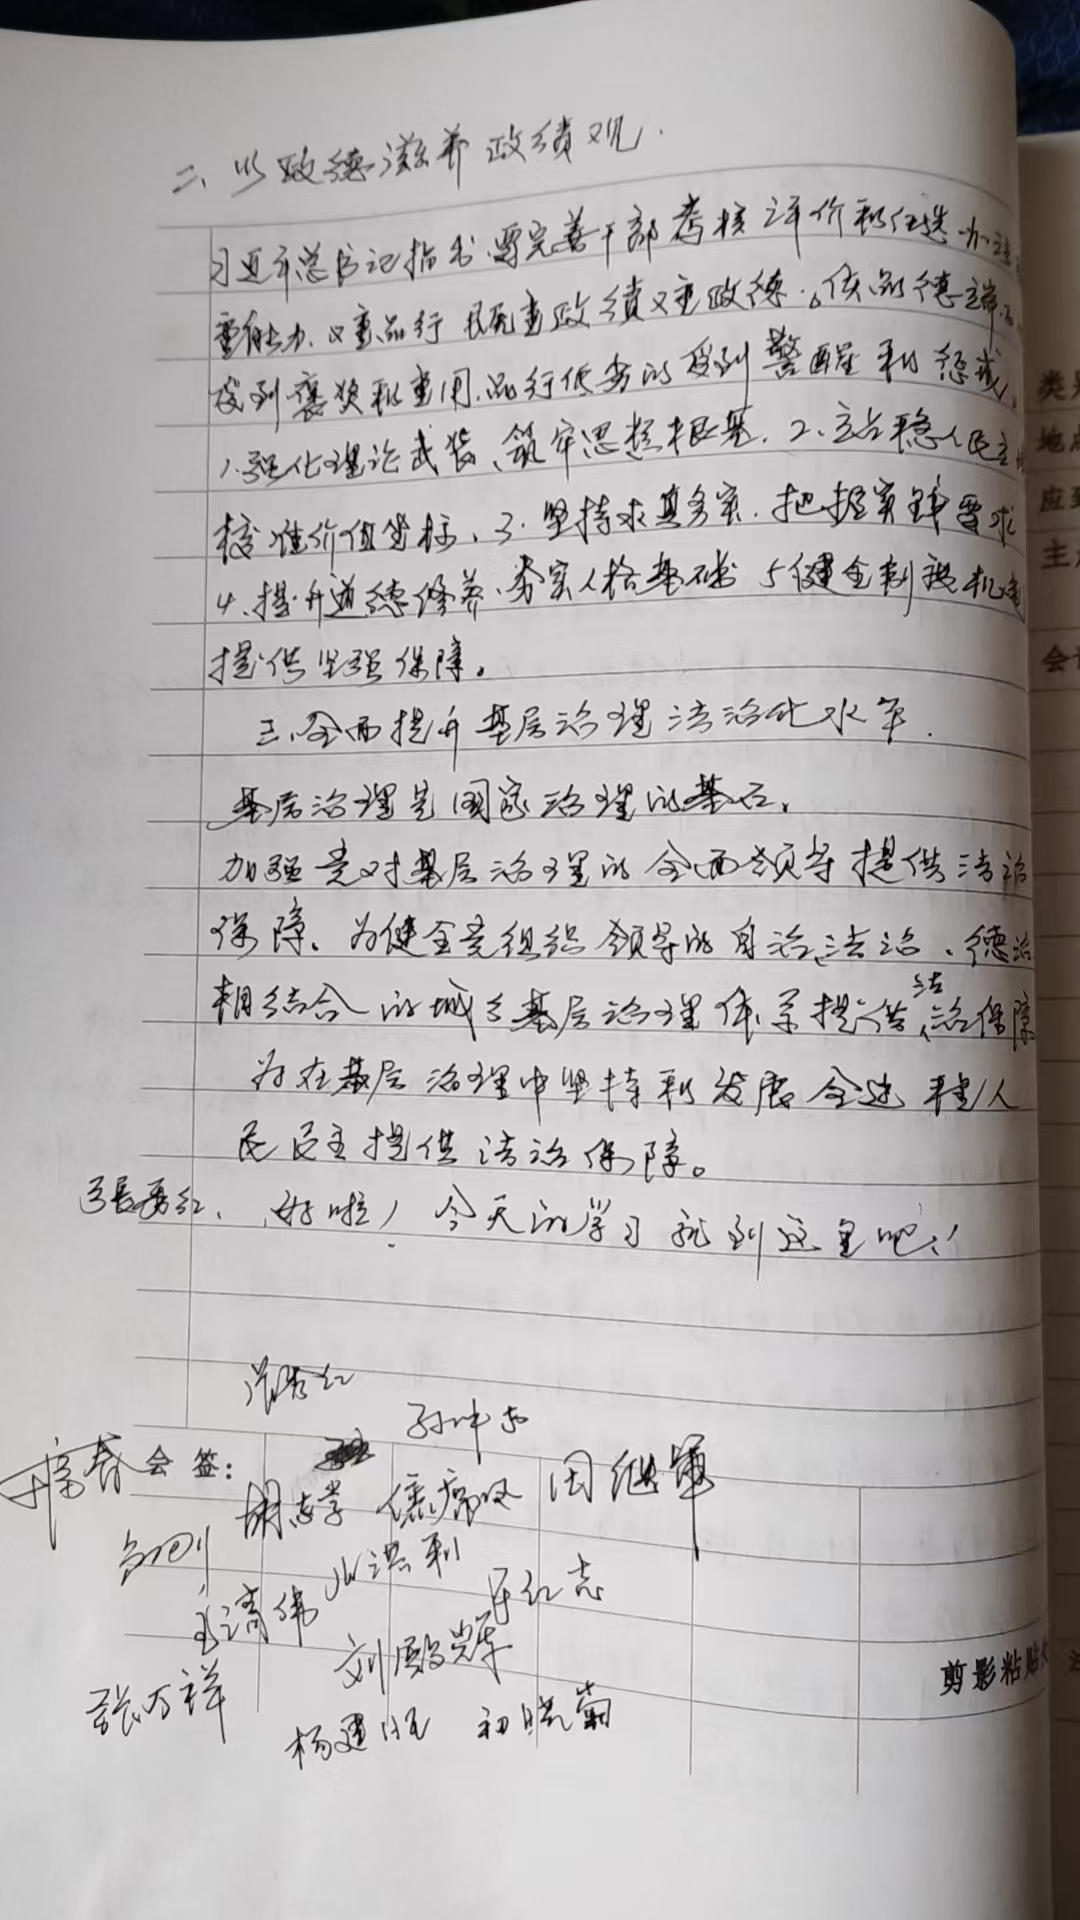 二、以政德滋养政绩观.
习近平总书记指出,要完善干部考核评价和任选办法
重能力、又重品行 既重政绩又重政德。使品德端
受到褒奖和重用,品行低劣的受到警醒和惩戒。
1.强化理论武装、筑牢思想根基. 2、站稳人民立
校准价值坐标、3.坚持求真务实.把握实践要求
4、提升道德修养、夯实人格基础 5健全制度机
提供坚强保障。
三、全面提升基层治理法治化水平.
基层治理是国家治理的基石。
加强党对基层治理的全面领导提供法治
保障、为健全党组织领导的自治、法治、德治
相结合的城乡基层治理体系提供法治保障
为在基层治理中坚持和发展全过程人
民民主提供法治保障。
好啦! 今天的学习就到这里吧!
会 签:
胡志学 周继军
于红志
张万祥 杨建 初晓菊
剪影粘贴
类
地
应到
主
会